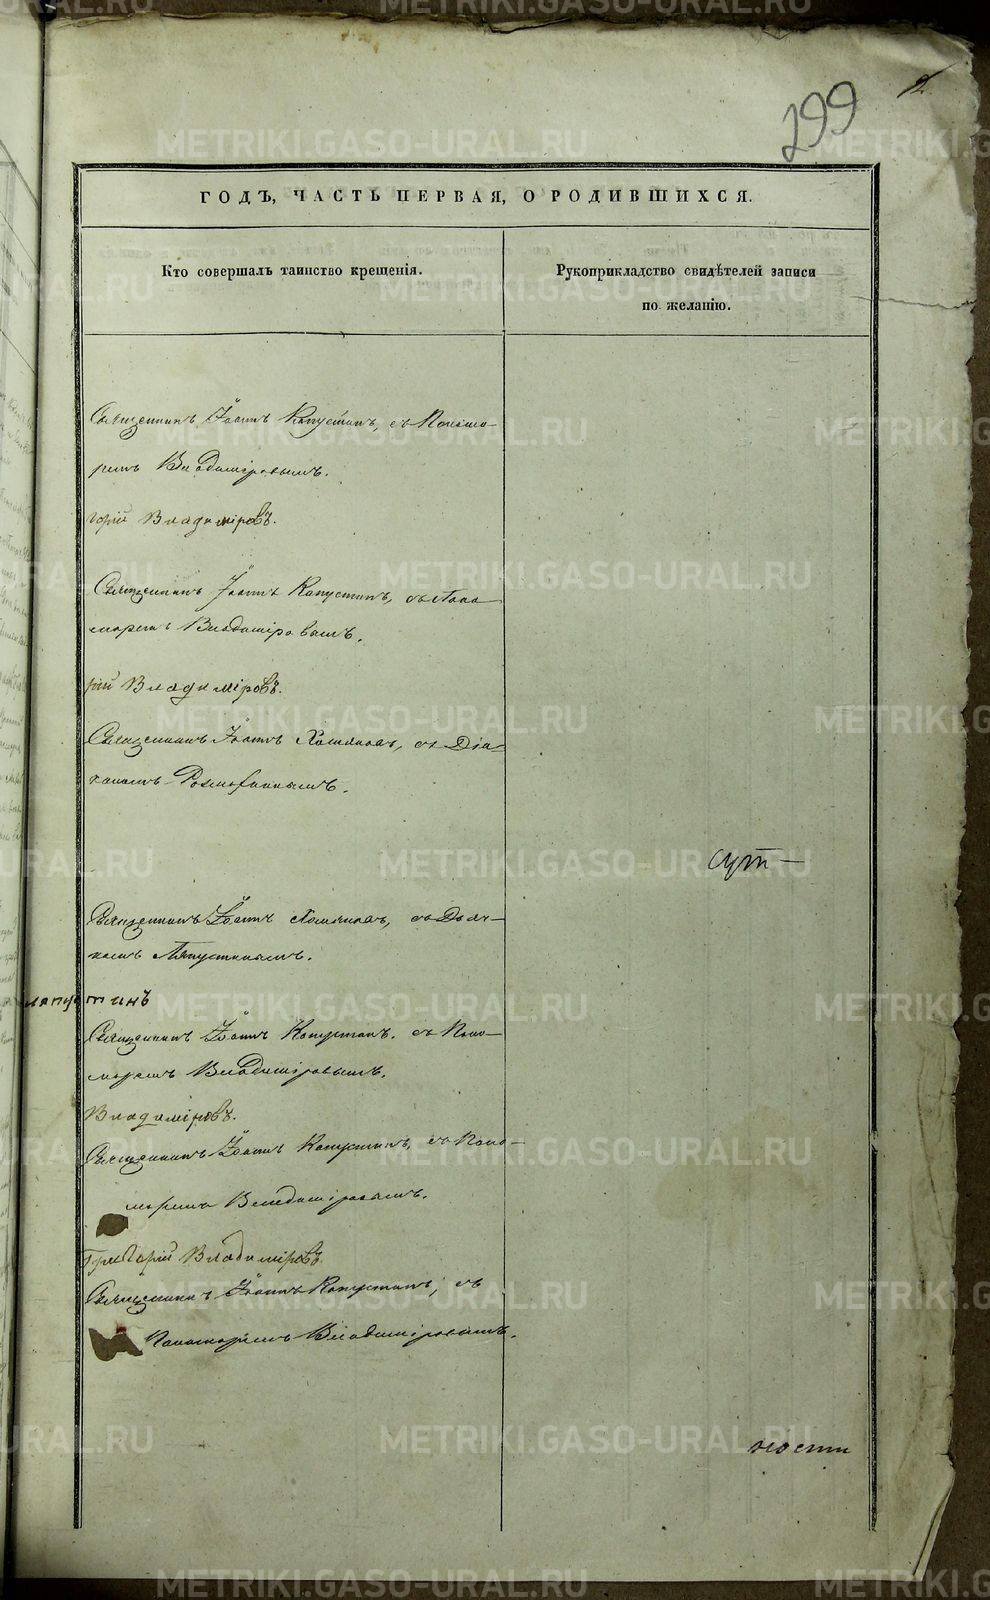 299
2
ГОДЪ, ЧАСТЬ ПЕРВАЯ, О РОДИВШИХСЯ.
Кто совершалъ таинство крещенія.
Рукоприкладство свидѣтелей записи
по желанію.
Священникъ Іоаннъ Капустинъ, съ Поно-
ремъ Владиміровымъ.
горій Владиміровъ.
Священникъ Іоаннъ Капустинъ, съ Поно
маремъ Владиміровымъ.
рій Владиміровъ.
Священникъ Іоаннъ Хомяковъ, съ Діа-
кономъ
сут-
Священникъ Іоаннъ Хомяковъ, съ Дьяч-
комъ Ляпустинымъ.
ляпустинъ
Священникъ Іоаннъ Капустинъ. съ Поно-
маремъ Владиміровымъ.
Владиміровъ.
Священникъ Іоаннъ Капустинъ, съ Поно-
маремъ Владиміровымъ.
Григорій Владиміровъ
Священникъ Іоаннъ Капустинъ, съ
Пономаремъ Владиміровымъ.
ности
METRIKI.GASO-URAL.RU